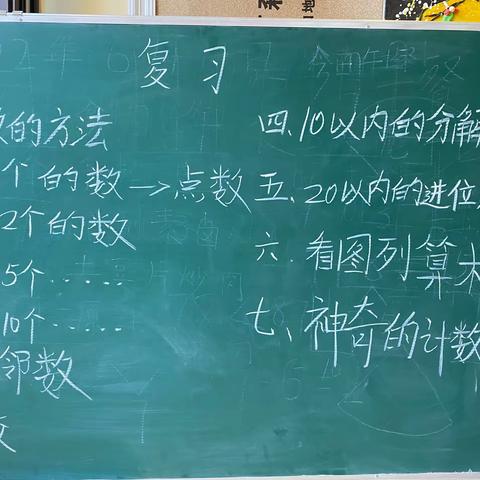 复习
的方法
个的数→点数
2个的数
5个······
10个······
邻数
四、10以内的分解
五、20以内的进位
六、看图列算术
七、神奇的计数